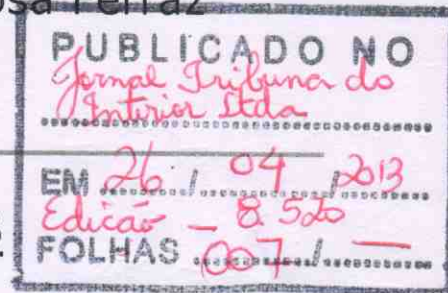 osa Ferraz
PUBLICADO NO
Jornal Tribuna do
Interior Ltda
EM 26 / 04 / 2013
Edição _ 8.520
FOLHAS 007 / —